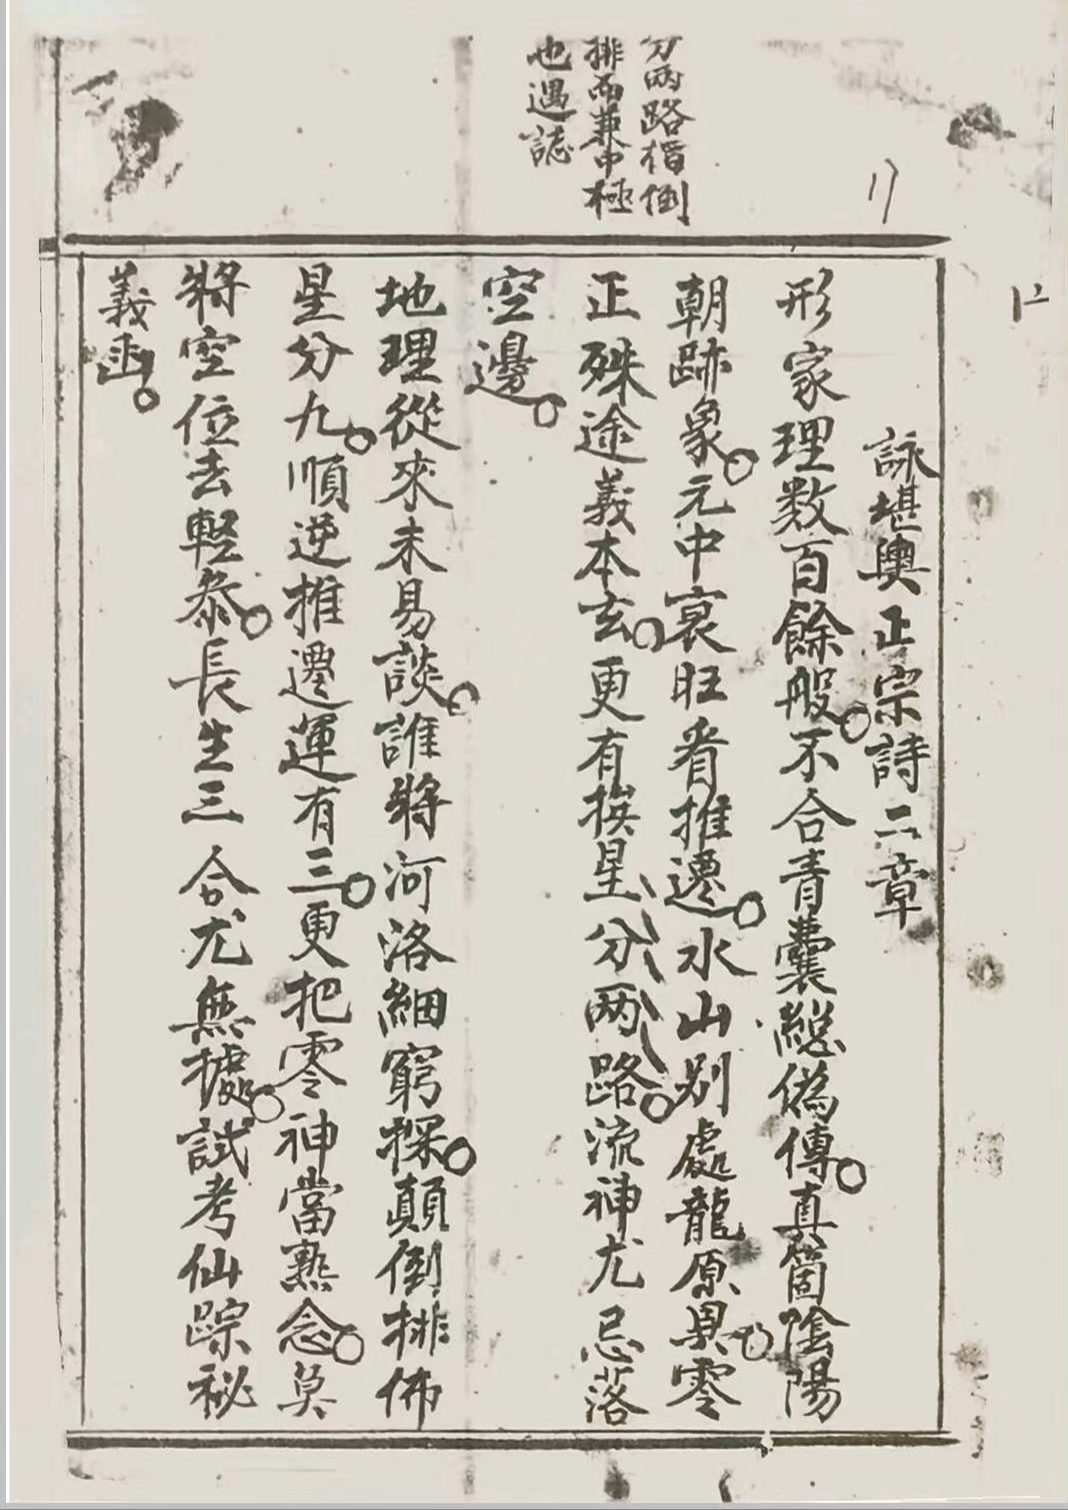 分兩路楷倒
排而兼中極
也遇誌
17
詠堪輿正宗詩二章
形家理数百餘般不合青囊總偽傳真箇陰陽
朝跡象元中衰旺看推遷水山别處龍原異零
正殊途義本玄更有挨星分两路流神尤忌落
空邊
地理從來未易談誰將河洛細窮探顛倒排佈
星分九順逆推遷運有三更把零神當熟念莫
將空位去輕叅長生三合尤無據試考仙踪祕
義函